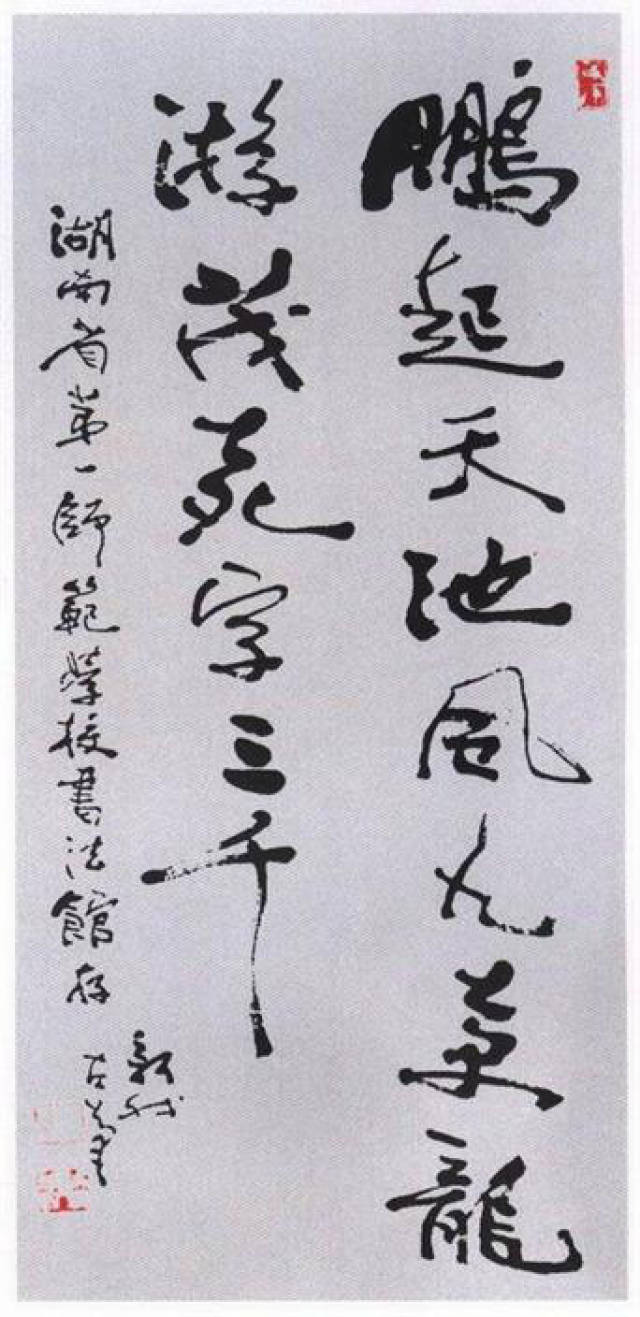 鵬起天池風九萬龍
游茂苑字三千
湖南省第一師範學校書法館存